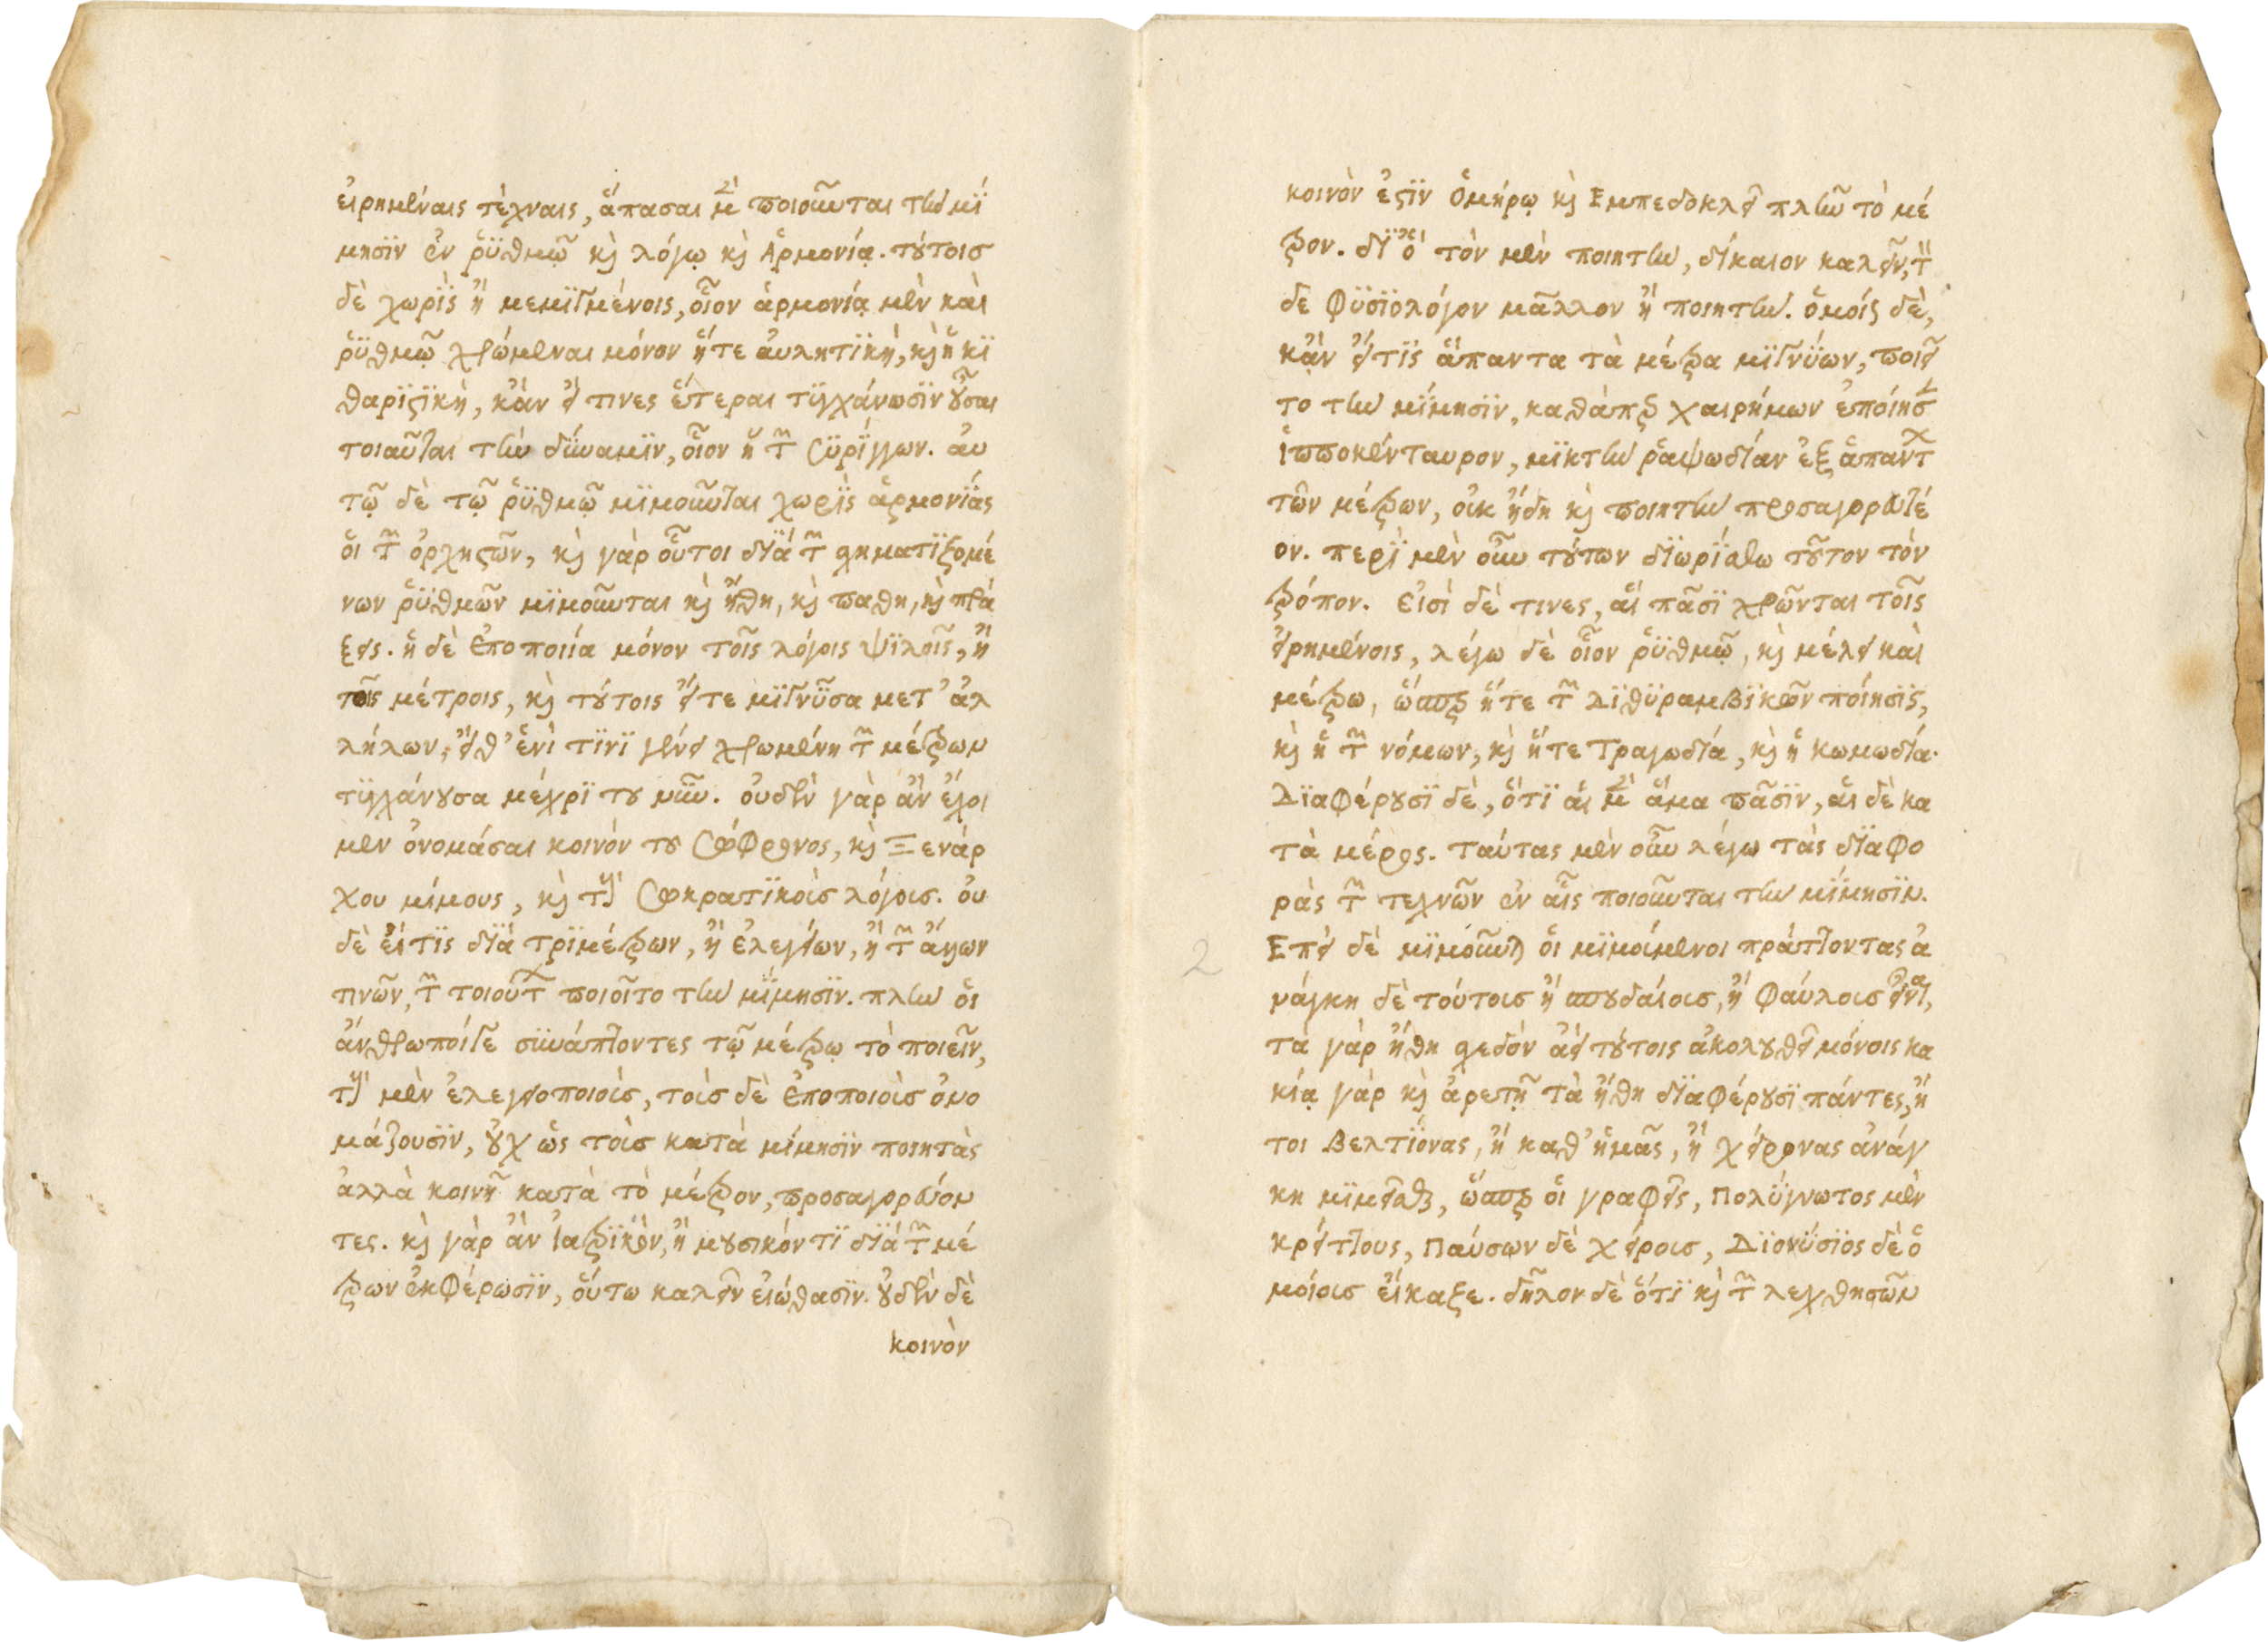 εἰρημέναις τὲχναις, ἅπασαι μὲν ποιοῦνται τὴν μί
μησϊν ἐν ῥϋθμῷ κὶ λόγῳ κὶ Ἁρμονίᾳ. τύτοισ
δὲ χωρὶς ἢ μεμϊγμένοις, οἷον ἁρμονίᾳ μὲν καὶ
ῥϋθμῷ χρώμεναι μόνον ἥτε ἀυλητϊκή, κὶ ἡ κϊ
θαρϊςϊκὴ, κἀν εἴ τινες ἕτεραι τϋγχάνωσϊν ȣ̓͂σαι
τοιαῦται τὴν δύναμϊν, οἷον ἡ τῶν Σϋρίγγων. ἀυ
τῷ δὲ τῷ ῥϋθμῷ μϊμοῦνται χωρὶς ἁρμονίας
ὁι τῶν ὀρχηςῶν, κὶ γὰρ οὗτοι δϊὰ τῶν σχηματϊζομέ
νων ῥϋθμῶν μϊμοῦνται κὶ ἤθη, κὶ παθη, κὶ πρά
ξεις. ἡ δὲ ἐποποιία μόνον τοῖς λόγοις ψϊλοῖς, ἢ
τοῖς μέτροις, κὶ τȣ́τοις εἴτε μϊγνῦσα μετ' ἀλ
λήλων, εἴθ' ἑνὶ τϊνϊ γένει χρωμένη τῶν μέτρων
τϋγχάνȣσα μέχρϊ τȣ νῦν. ὀυδὲν γὰρ ἂν ἔχοι
μεν ὀνομάσαι κοινὸν τȣ Σώφρονος, κὶ Ξενάρ
χου μίμους, κὶ τοὺς Σωκρατϊκοὶς λόγοις. ὀυ
δὲ εἴ τϊς δϊὰ τρϊμέτρων, ἢ ἐλεγείων, ἢ τῶν ἄλλων
τινῶν, τῶν τοιούτων ποιοῖτο τὴν μίμησϊν. πλὴν ὁι
ἄνθρωποίγε συνάπτοντες τῷ μέτρῳ τὸ ποιεῖν,
τοὺς μὲν ἐλεγειοποιοὶς, τοὶσ δὲ ἐποποιοὶσ ὀνο
μάζουσϊν, ȣ̓χ ὡς τοὶσ κατὰ μίμησϊν ποιητὰς
ἀλλὰ κοινῇ κατὰ τὸ μέτρον, προσαγορεύον
τες. κὶ γὰρ ἂν ἰατρϊκὸν, ἢ μȣσικόν τϊ δϊὰ τῶν μέ
τρων ἐκφέρωσϊν, ὅυτω καλεῖν εἰώθασϊν. ȣ̓δὲν δὲ
κοινὸν
κοινὸν ἐςϊν Ὁμήρῳ κὶ Εμπεδοκλεῖ πλὴν τὸ μέ
τρον. δϊ' ὃ τὸν μὲν ποιητὴν, δίκαιον καλεῖν, τὸν
δε φϋσϊολόγον μᾶλλον ἢ ποιητὴν. ὁμοίως δὲ,
κἂν εἴτϊς ἅπαντα τὰ μέτρα μϊγνύων, ποιεῖ
το τὴν μίμησϊν, καθάπερ χαιρήμων ἐποίησε
ἱπποκένταυρον, μϊκτὴν ῥαψωδίαν ἐξ ἁπάντων
τῶν μέτρων, οἰκ ἤδη κὶ ποιητὴν προσαγορευτέ
ον. περὶ μὲν οὖν τȣ́των δϊωρίσθω τȣ͂τον τὸν
τρόπον. εἰσὶ δὲ τινες, ἃι πᾶσϊ χρῶνται τοῖς
εἰρημένοις, λέγω δὲ οἷον ῥϋθμῷ, κὶ μέλει καὶ
μέτρω, ὥσπερ ἥτε τῶν Δϊθϋραμβϊκῶν ποίησϊς,
κὶ ἡ τῶν νόμων, κὶ ἥτε Τραγωδία, κὶ ἡ κωμωδία.
Δϊαφέρȣσϊ δὲ, ὅτϊ ἁι μὲν ἅμα πᾶσϊν, ἁι δὲ κα
τὰ μέρος. ταύτας μὲν οὖν λέγω τὰς δϊαφο
ρὰς τῶν τεχνῶν ἐν αἷς ποιοῦνται τὴν μίμησϊν.
Επεὶ δὲ μϊμοῦνται ὁι μϊμοίμενοι πράττοντας ἀ
νάγκη δὲ τούτοισ ἢ σπουδαίοισ, ἢ φαύλοισ εἶναι,
τὰ γὰρ ἤθη σχεδὸν ἀεὶ τύτοις ἀκολȣθεῖ μόνοις κα
κίᾳ γὰρ κὶ ἀρετῇ τὰ ἤθη δϊαφέρȣσϊ πάντες, ἤ
τοι Βελτϊόνας, ἢ καθ' ἡμᾶς, ἢ χείρονας ἀνάγ
κη μϊμεῖσθαι, ὥσπερ ὁι γραφεῖς, Πολύγνωτος μὲν
κρείττους, Παύσων δὲ χείροισ, Δϊονύσϊος δὲ ὁ
μοίοισ εἴκαξε. δῆλον δὲ ὅτϊ κὶ τῶν λεχθησῶν
2